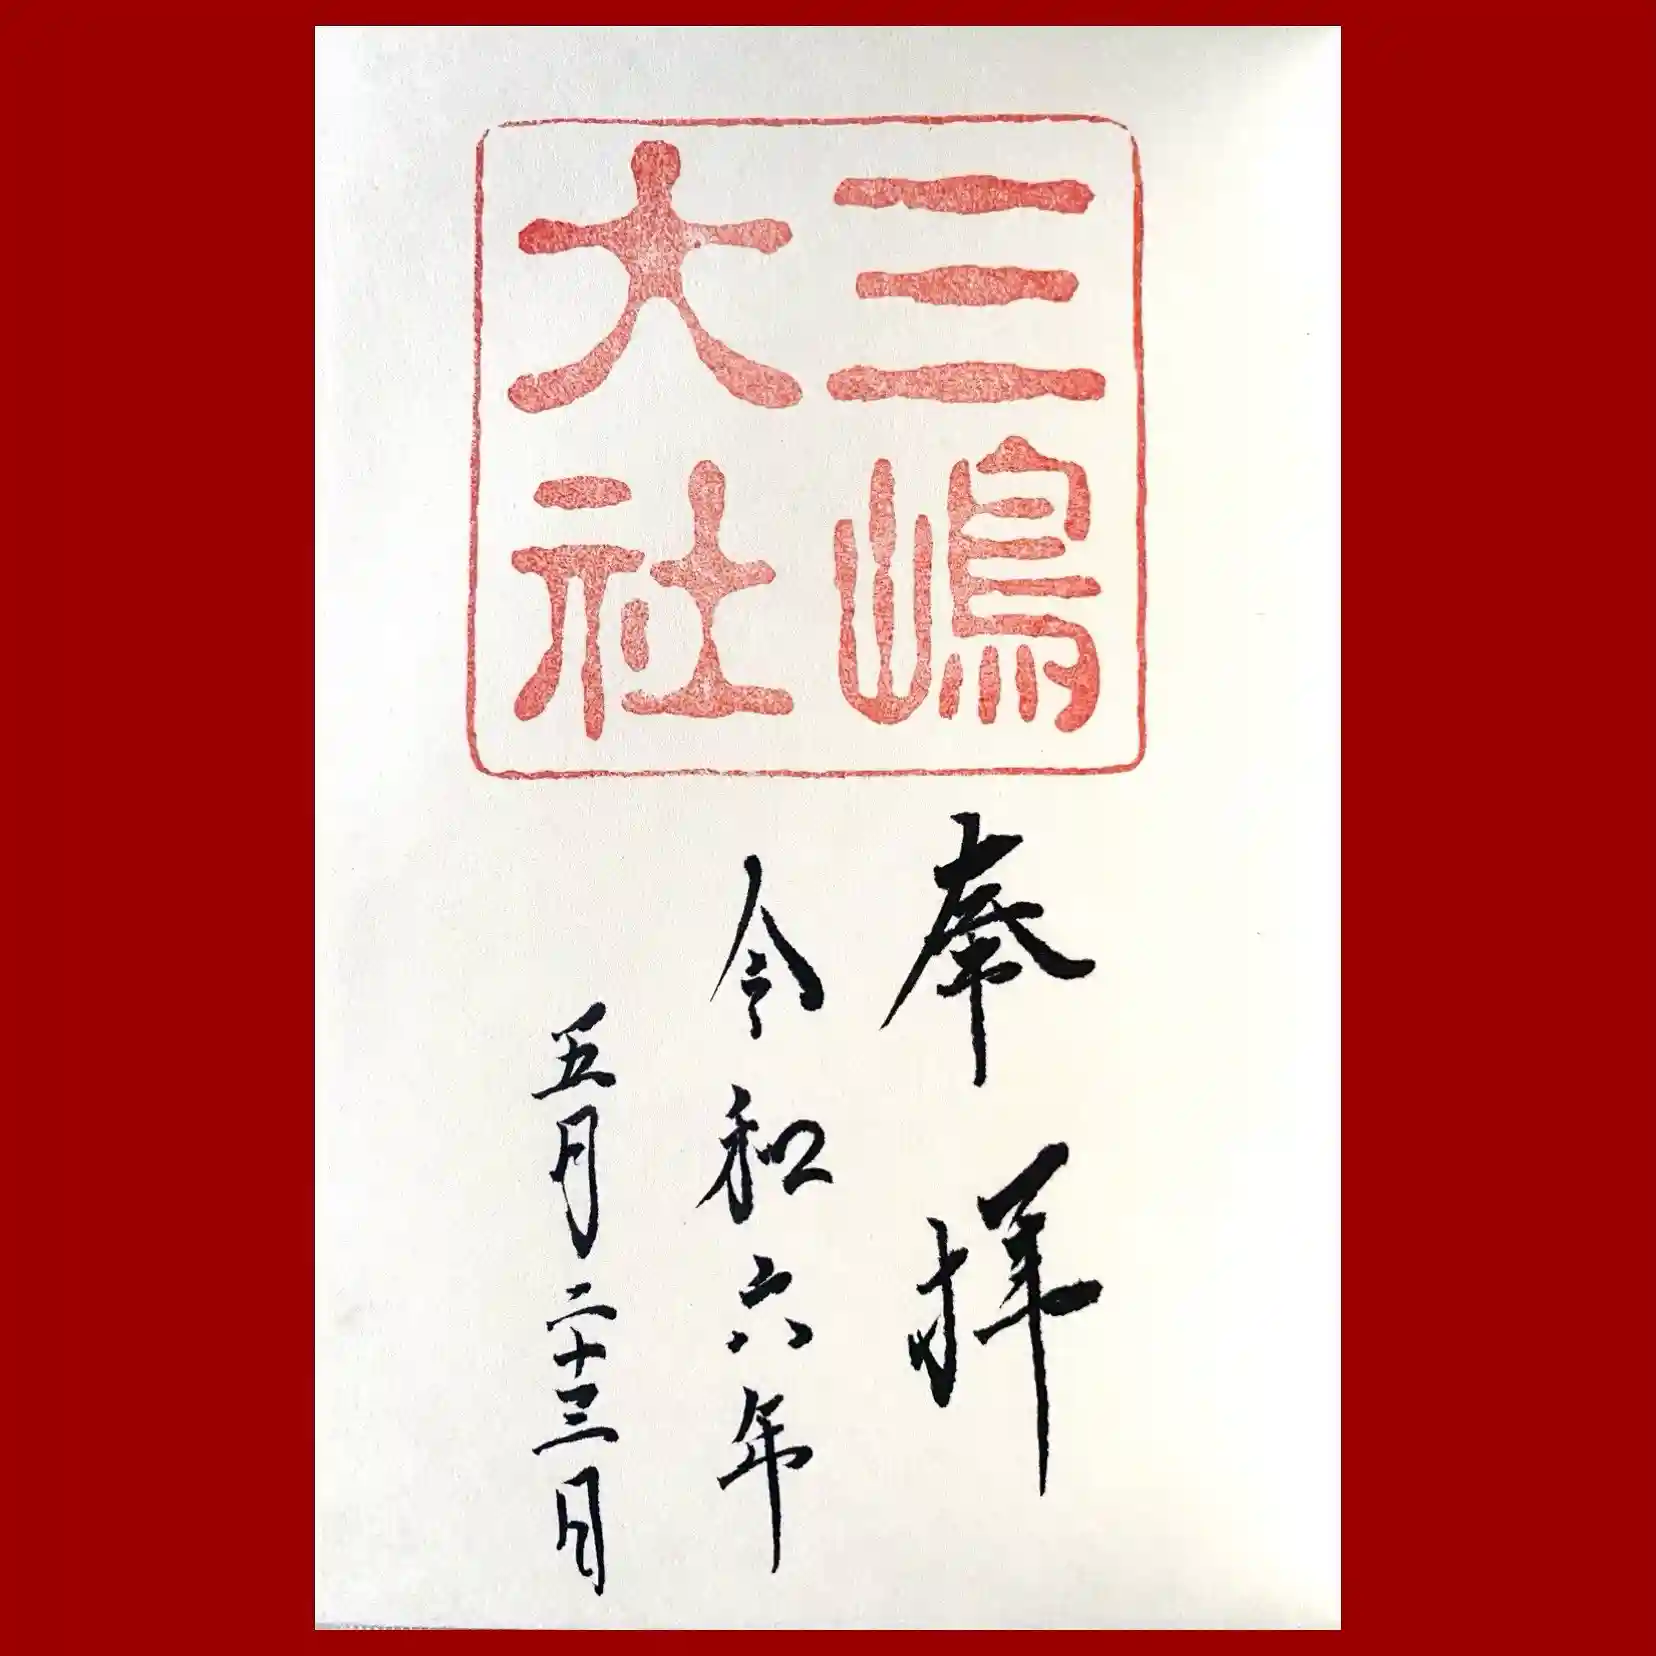 三嶋
大社
奉拝
令和六年
五月二十三日